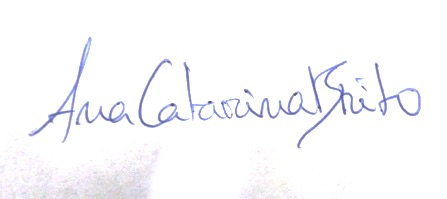 Ana Catarina Brito